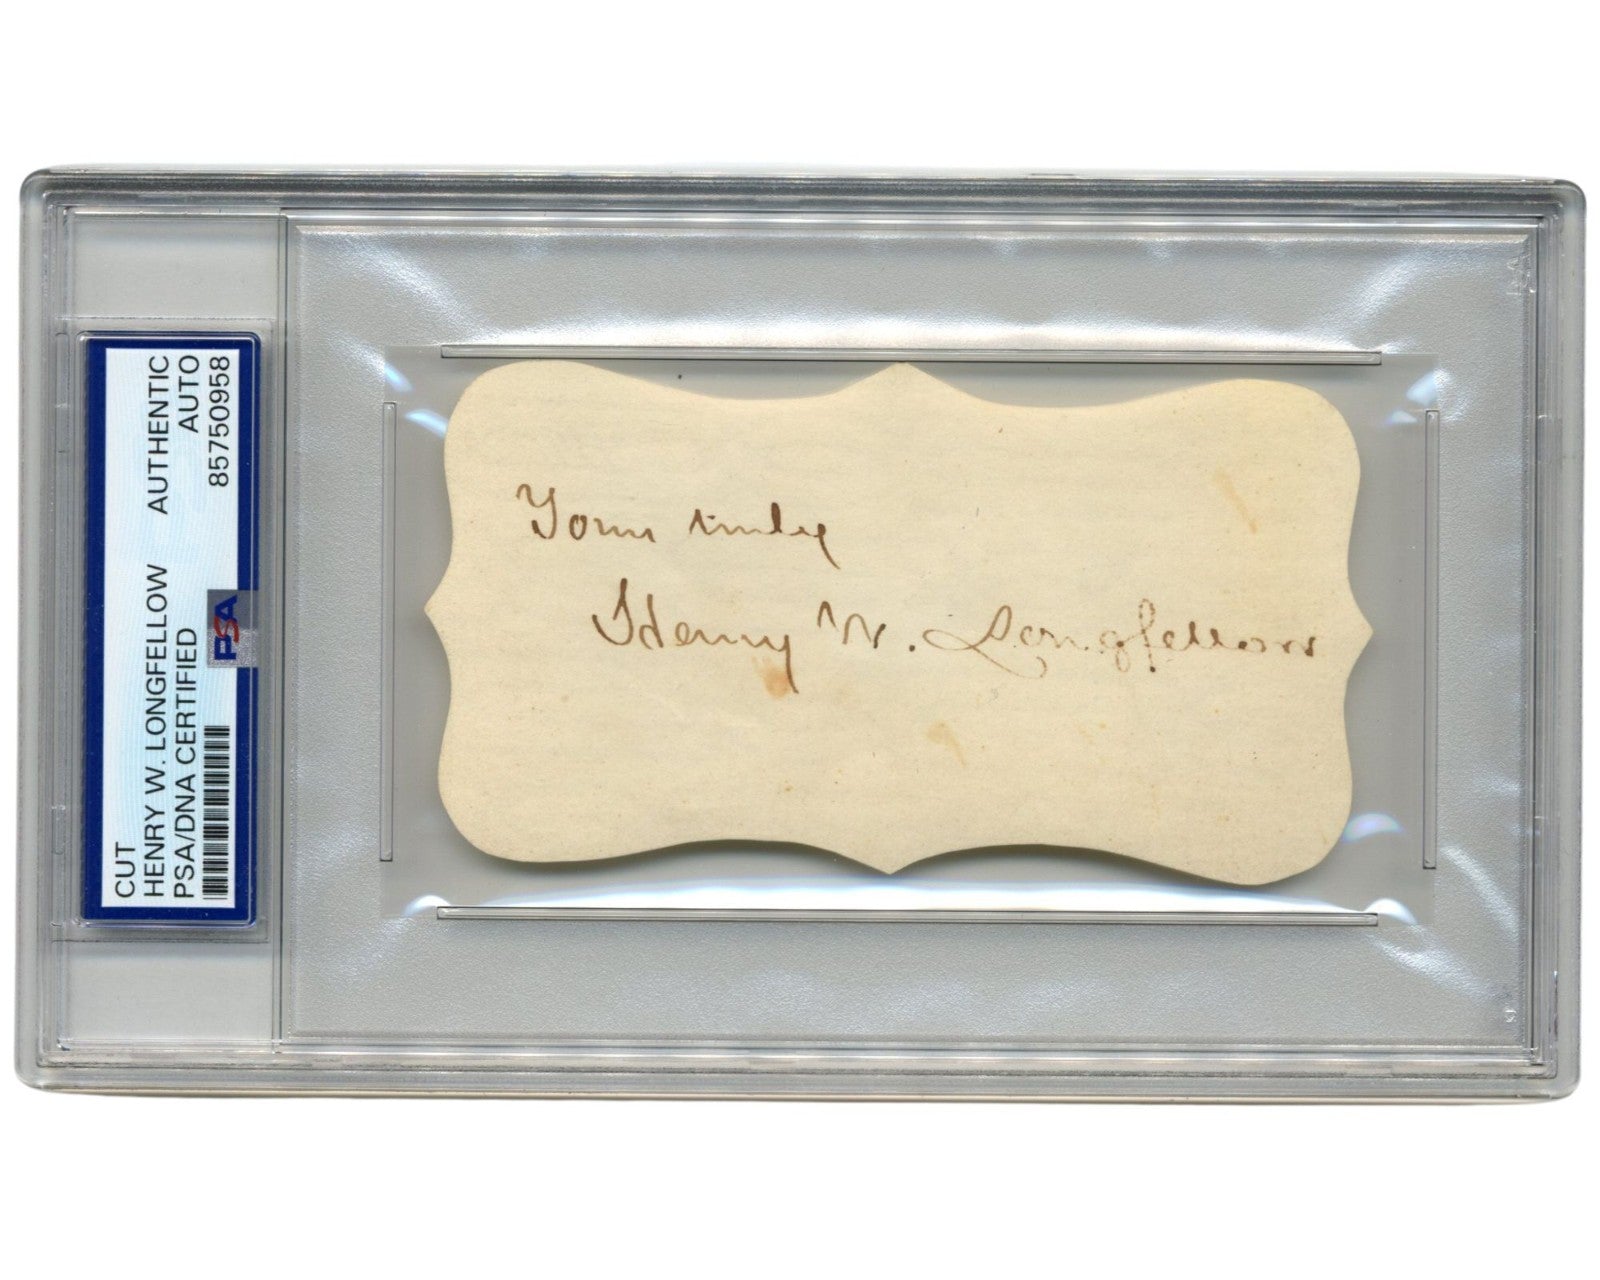 CUT AUTHENTIC
HENRY W. LONGFELLOW AUTO
PSA/DNA CERTIFIED 85750958
PSA
Yours truly
Henry W. Longfellow